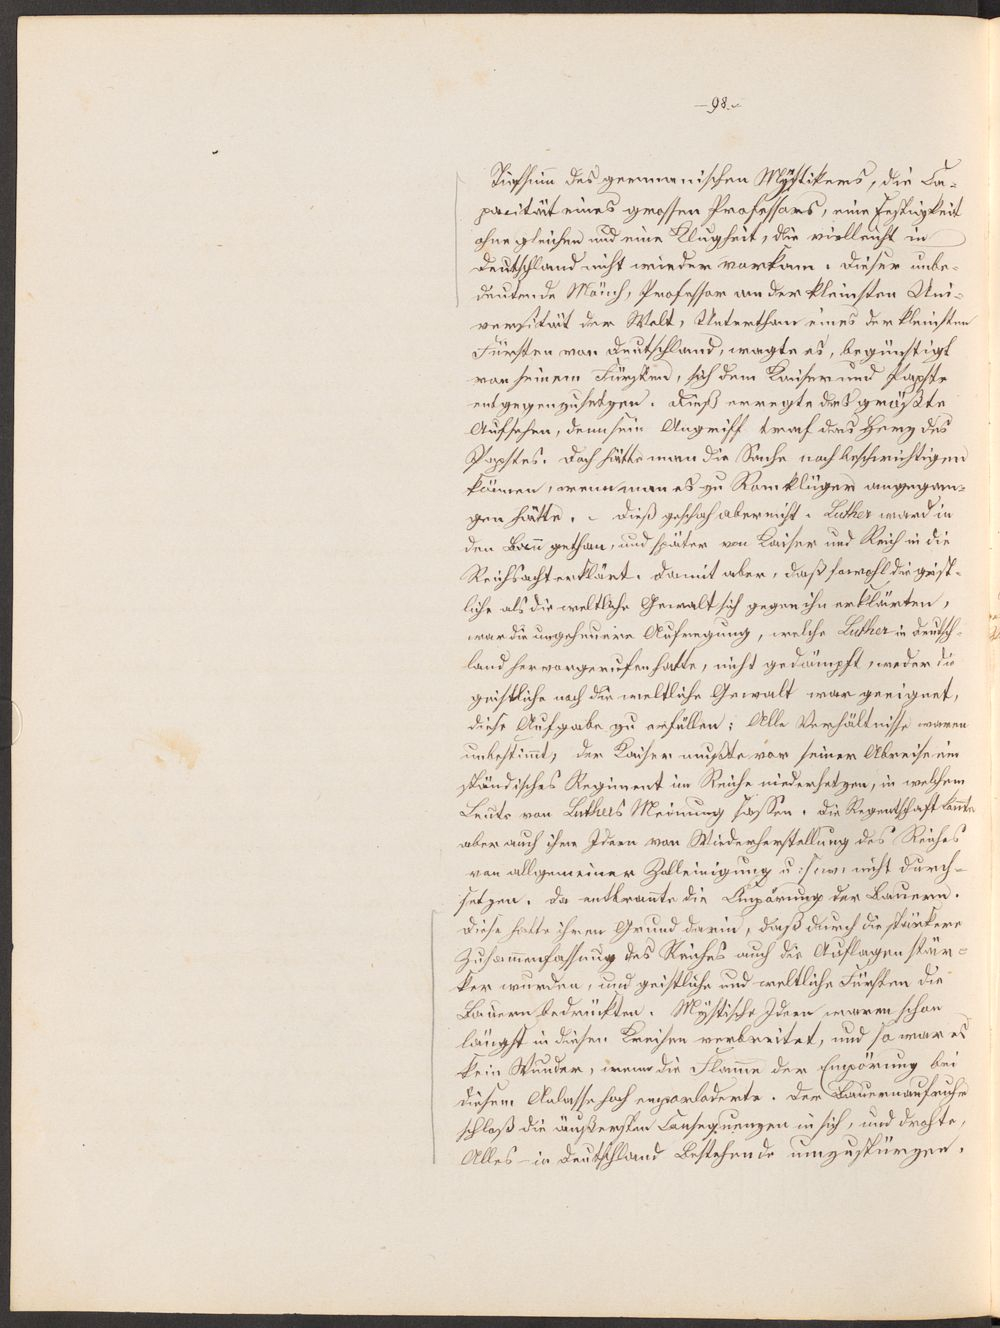 -98.-
Tiefsinn des germanischen Mystikers, die Ca-
pacität eines grossen Professors, eine Festigkeit
ohne gleichen und eine Klugheit, die vielleicht in
Deutschland nicht wieder vorkam. Dieser unbe-
deutende Mönch, Professor an der kleinsten Uni-
versität der Welt, Unterthan eines der kleinsten
Fürsten von Deutschland, wagte es, begünstigt
von seinem Fürsten, sich dem Kaiser und Papste
entgegenzusetzen. Dieß erregte das größte
Aufsehen, denn sein Angriff traf das Herz des
Papstes. Doch hätte man die Sache noch beschwichtigen
können, wenn man es zu Rom klüger angegan-
gen hätte. - Dieß geschah aber nicht. Luther ward in
den Bann gethan, und später von Kaiser und Reich in die
Reichsacht erklärt. Damit aber, daß sowohl die geist-
liche als die weltliche Gewalt sich gegen ihn erklärten,
war die ungeheuere Aufregung, welche Luther in Deutsch-
land hervorgerufen hatte, nicht gedämpft, weder die
geistliche noch die weltliche Gewalt war geeignet,
diese Aufgabe zu erfüllen; Alle Verhältnisse waren
unbestimmt, der Kaiser mußte vor seiner Abreise ein
ständisches Regiment im Reiche niedersetzen, in welchem
Leute von Luthers Meinung sassen. Die Regentschaft konnte
aber auch ihre Ideen von Wiederherstellung des Reiches
von allgemeiner Zolleinigung u: s. w. nicht durch-
setzen. Da entbrannte die Empörung der Bauern.
Diese hatte ihren Grund darin, daß durch die stärkere
Zusammenfassung des Reiches auch die Auflagen stär-
ker wurden, und geistliche und weltliche Fürsten die
Bauern bedrückten. Mystische Ideen waren schon
längst in diesen Kreisen verbreitet, und so war es
kein Wunder, wenn die Flamme der Empörung bei
diesem Anlasse hoch emporloderte. Der Bauernaufruhr
schloß die äußersten Consequenzen in sich, und drohte,
Alles in Deutschland Bestehende umzustürzen.